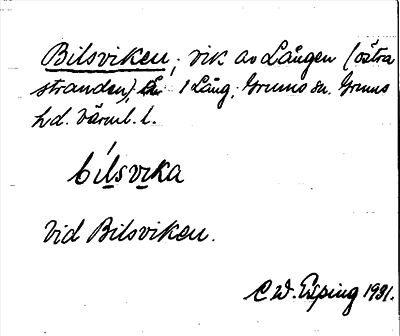 Bilsviken, vik av Lången (östra
stranden), 1 Lång, Grums sn. Grums
hd. Värml. l.
bílsvika
Vid Bilsviken.
C W. Esping 1931.